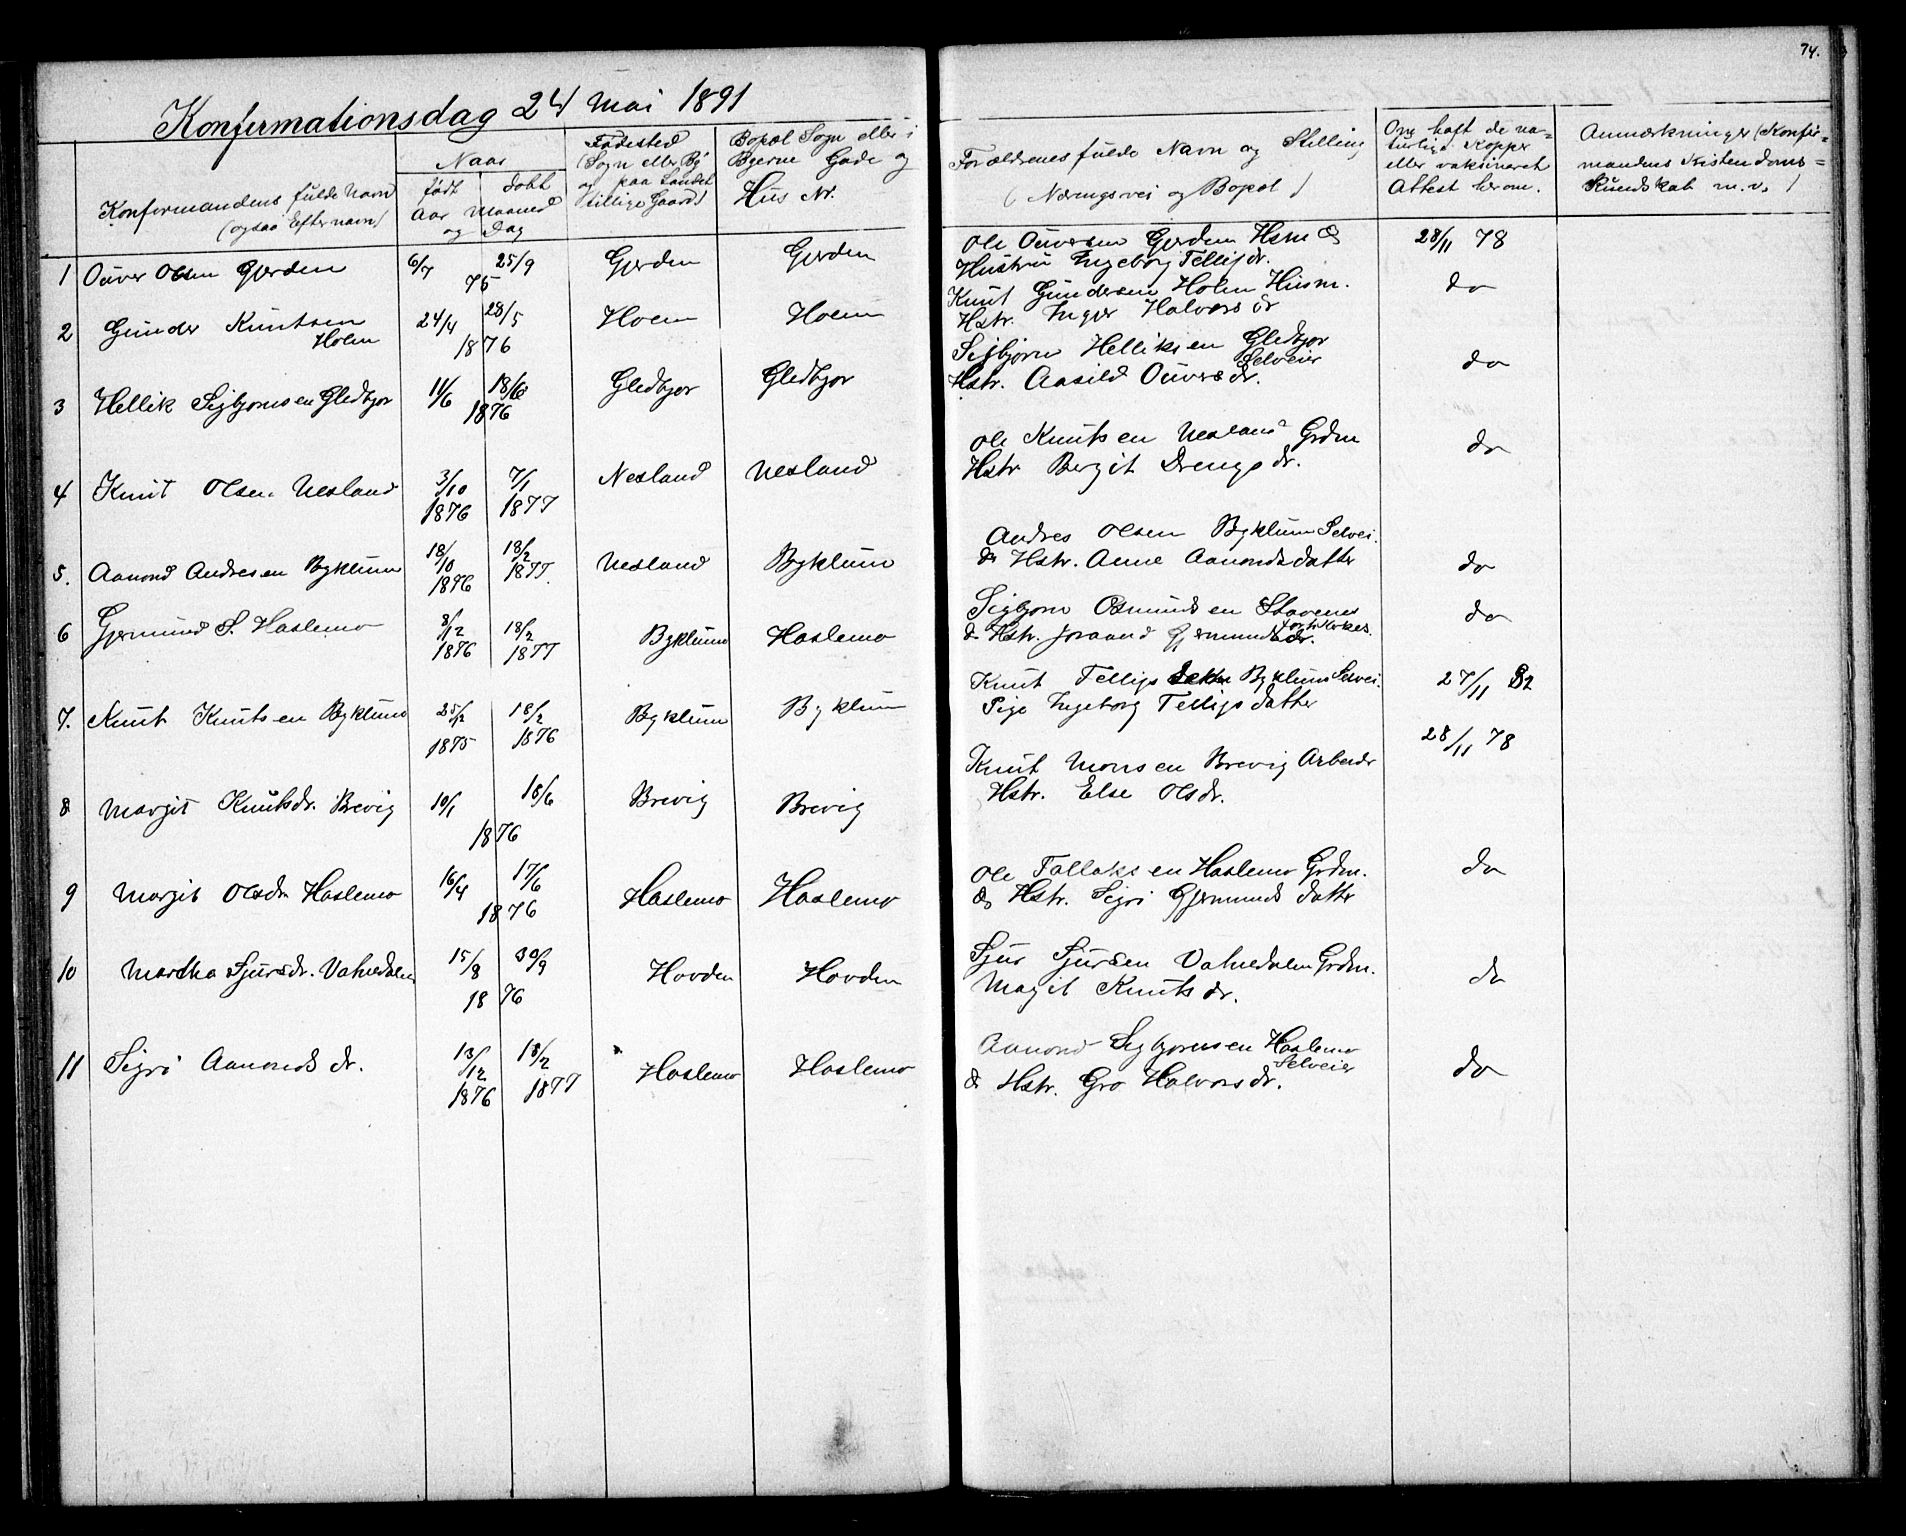 74.
Konfirmationsdag 24 Mai 1891
Konfirmandens fulde Navn
(ogsaa Efternavn)
Naar
født
døbt
Aar Maaned
og Dag
Fødested
(Sogn eller By
og paa Landet
tillige Gaard)
Bopæl Sogn eller i
Byerne Gade og
Hus Nr.
Forældrenes fulde Navn og Stilling
(Næringsvei og Bopæl)
Om haft de na=
turlige Kopper
eller vaksineret
Attest herom.
Anmærkninger (Konfir=
mandens Kristendoms=
Kundskab m.v.)
1 Ouver Olsen Gjerden 6/7 25/9 Gjerden Gjerden
75
Ole Ouversen Gjerden Hsm &
Hustru Ingeborg Tellifdr.
28/11 78
2 Gunder Knutsen 24/4 28/5 Hoem Hoem
Holen
1876
Knut Gundersen Holen Husm.
Hstr. Inger Halvorsdr
do
3 Hellik Sigbjornsen Gledbjor 11/6 18/6 Gledbjor Gledbjor
1876
Sigbjorn Helliksen Gledbjor
Selveier
Hstr. Aasild Ouversdr.
do
4 Knut Olsen Nesland 3/10 7/1 Nesland Nesland
1876 1877
Ole Knutsen Nesland Grdm
Hstr Bergit Drengsdr.
do
5. Aanond Andresen Byklum 18/10 18/2 Nesland Byklum
1876 1877.
Andres Olsen Byklum Selvei.
& Hstr. Anne Aanondsdatter
do
6 Gjermund S. Haslemo 8/12 18/2 Byklum Haslemo
1876 1877
Sigbjorn Osmundsen Stavenes
& Hstr. Joraand Gjermundsdr.
do
7. Knut Knutsen Byklum 25/12 18/2 Byklum Byklum
1875 1876
Knut Tellifs Byklum Selvei.
Pige Ingeborg Tellifsdatter
27/11 82
8 Margit Knutsdr. Brevig 10/1 18/6 Brevig Brevig
1876
Knut Monsen Brevig Arbeider
Hstr. Else Olsdr.
28/11 78
9 Margit Olsdr Haslemo 16/4 17/6 Haslemo Haslemo
1876
Ole Tallaksen Haslemo Grdm.
& Hstr. Sigri Gjermunds datter
do
10 Martha Sjursdr. Vatnedalen 15/8 30/9 Hovden Hovden
1876
Sjur Sjursen Vatnedalen Grdm.
Magit Knutsdr.
do
11 Sigri Aanonds dr. 13/12 18/2 Haslemo Haslemo
1876 1877
Aanond Sigbjornsen Haslemo
Selveier
& Hstr. Gro Halvorsdr.
do